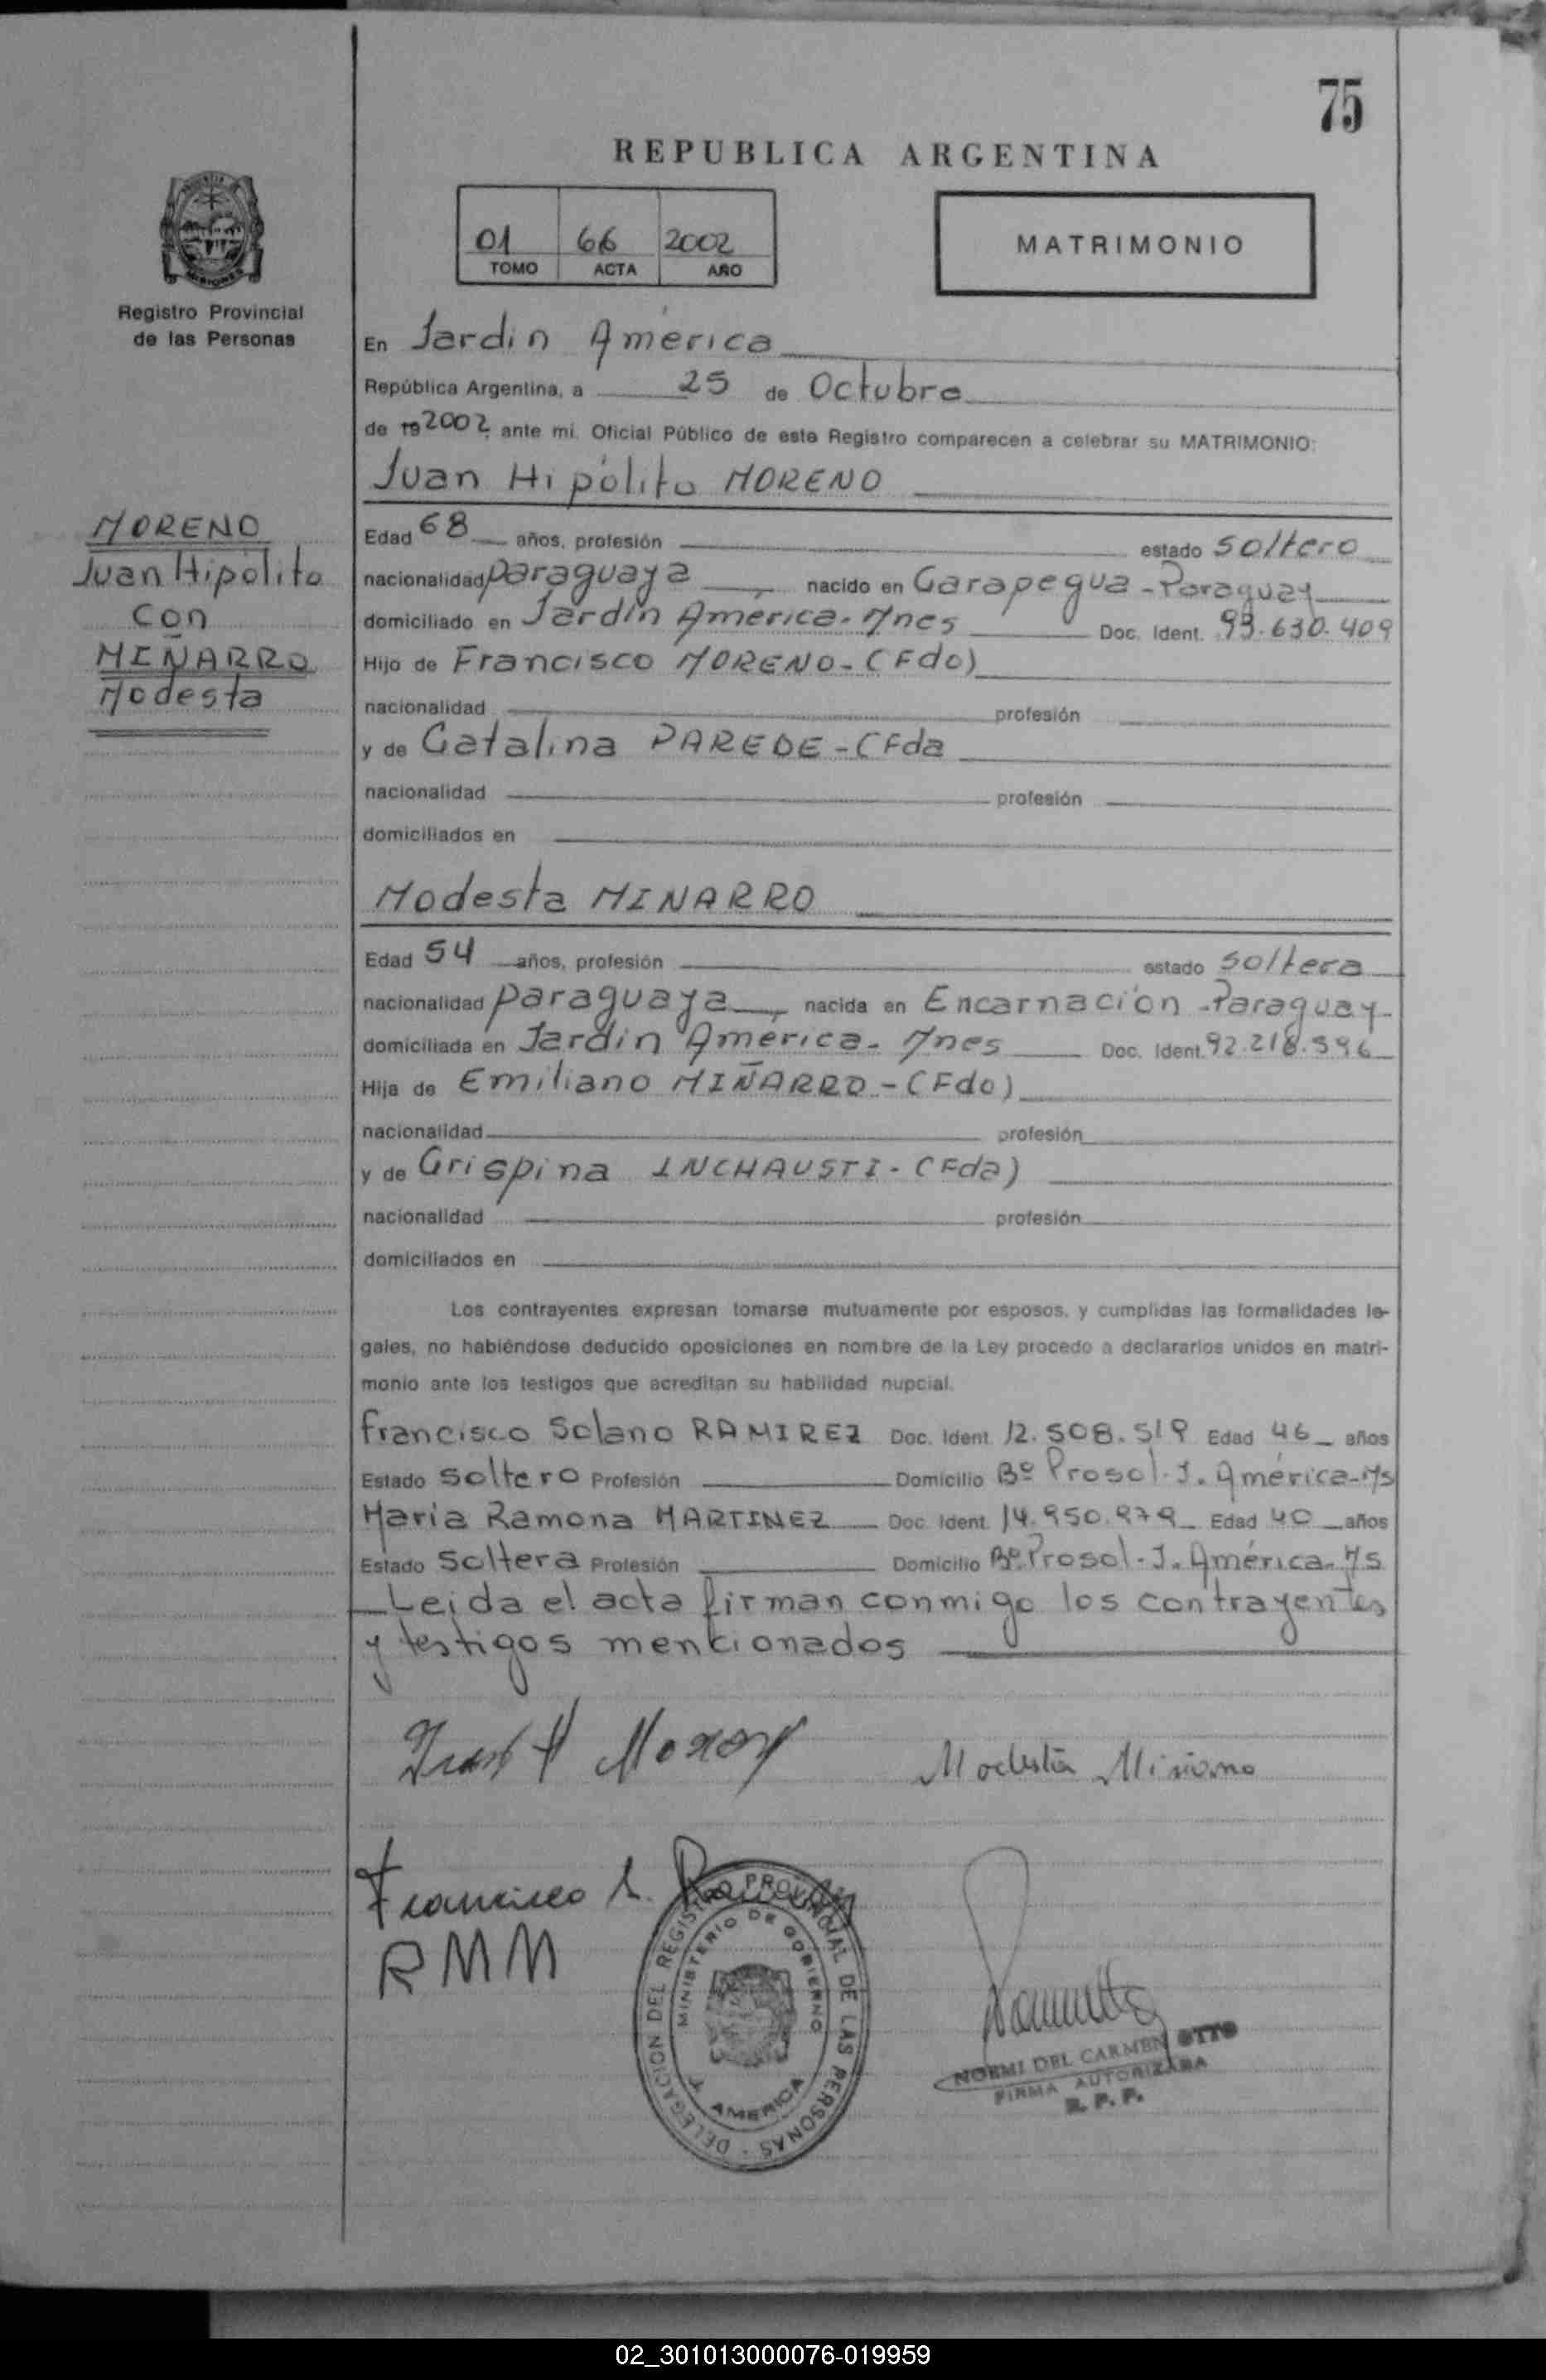 75
REPUBLICA ARGENTINA
01 66 2002
TOMO ACTA AÑO
MATRIMONIO
Registro Provincial
de las Personas
En Jardin América
República Argentina, a 25 de Octubre
de 19 2002, ante mí, Oficial Público de este Registro comparecen a celebrar su MATRIMONIO:
Juan Hipólito MORENO
MORENO
Juan Hipólito
con
MIÑARRO
Modesta
Edad 68 años, profesión estado soltero
nacionalidad paraguaya nacido en Carapegua - Paraguay
domiciliado en Jardín América - Mnes Doc. Ident. 93.630.409
Hijo de Francisco MORENO - (Fdo)
nacionalidad profesión
y de Catalina PAREDE - (Fda
nacionalidad profesión
domiciliados en
Modesta MINARRO
Edad 54 años, profesión estado soltera
nacionalidad paraguaya nacida en Encarnación - Paraguay
domiciliada en Jardín América - Mnes Doc. Ident. 92.218.596
Hija de Emiliano MIÑARRO - (Fdo)
nacionalidad profesión
y de Crispina INCHAUSTI - (Fda)
nacionalidad profesión
domiciliados en
Los contrayentes expresan tomarse mutuamente por esposos, y cumplidas las formalidades le-
gales, no habiéndose deducido oposiciones en nombre de la Ley procedo a declararlos unidos en matri-
monio ante los testigos que acreditan su habilidad nupcial.
Francisco Solano RAMIREZ Doc. Ident. 12.508.519 Edad 46 años
Estado soltero Profesión Domicilio Bº Prosol - J. América - Ms
Maria Ramona MARTINEZ Doc. Ident. 14.950.979 Edad 40 años
Estado soltera Profesión Domicilio Bº Prosol - J. América - Ms
Leida el acta firman conmigo los contrayentes
y testigos mencionados
Modesta Miñarro
Francisco S.
RMM
DELEGACION DEL REGISTRO PROVINCIAL DE LAS PERSONAS
MINISTERIO DE GOBIERNO
J. AMERICA
NOEMI DEL CARMEN OTTO
FIRMA AUTORIZADA
R. P. P.
02_301013000076-019959